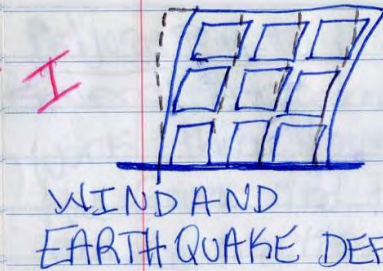 I
WIND AND
EARTHQUAKE DEF